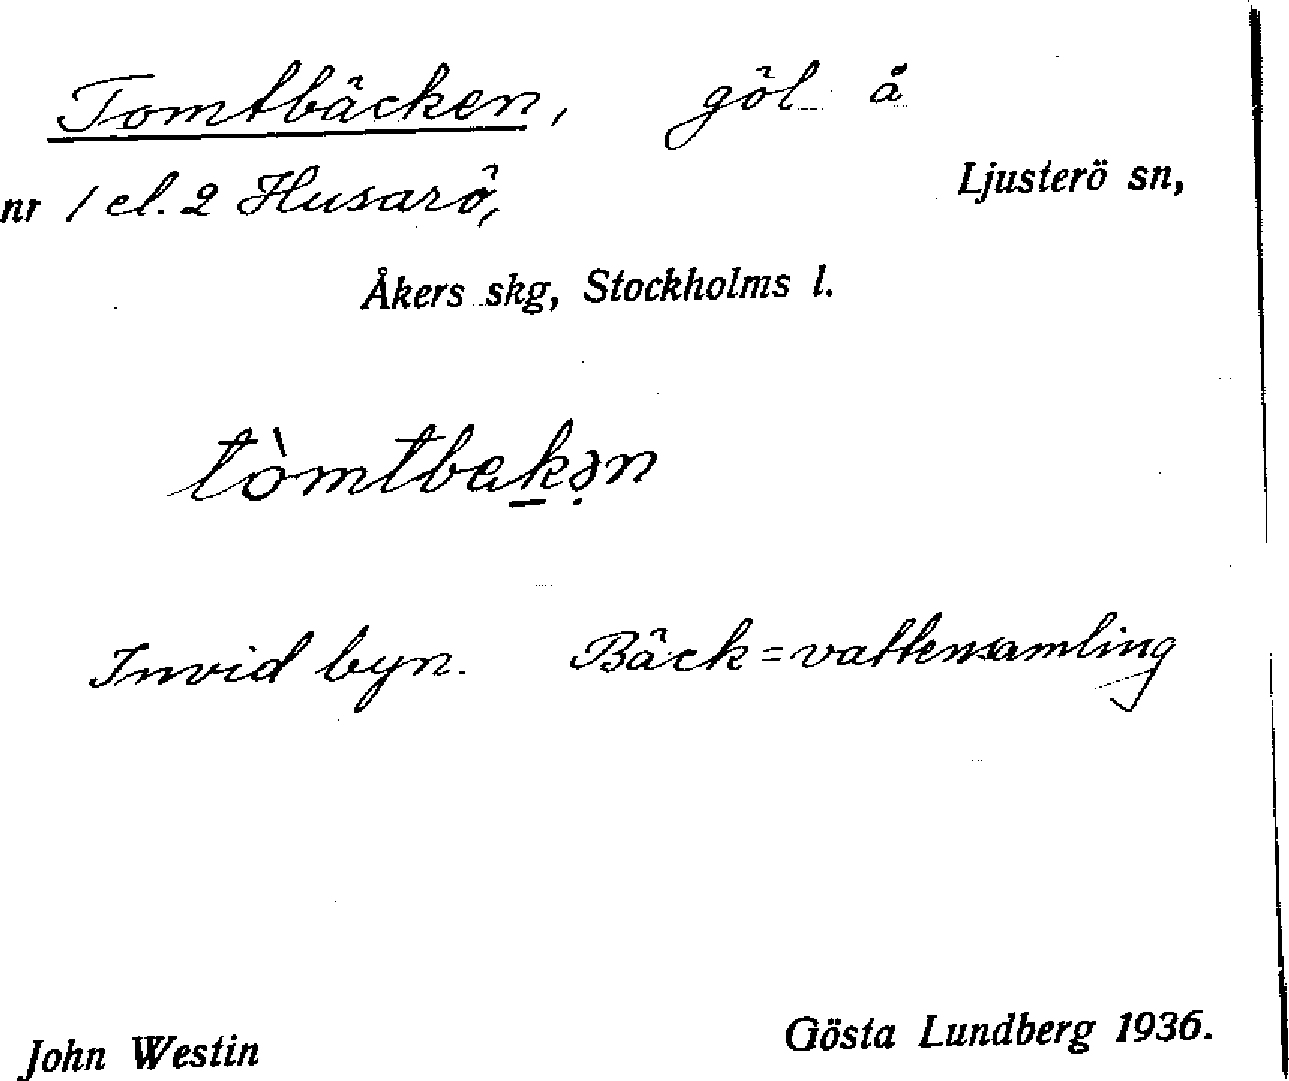 Tomtbäcken, göl å
nr 1 el. 2 Husarö, Ljusterö sn,
Åkers skg, Stockholms l.
tòmtbak̠ə̣n
Invid byn. Bäck = vattensamling
John Westin Gösta Lundberg 1936.